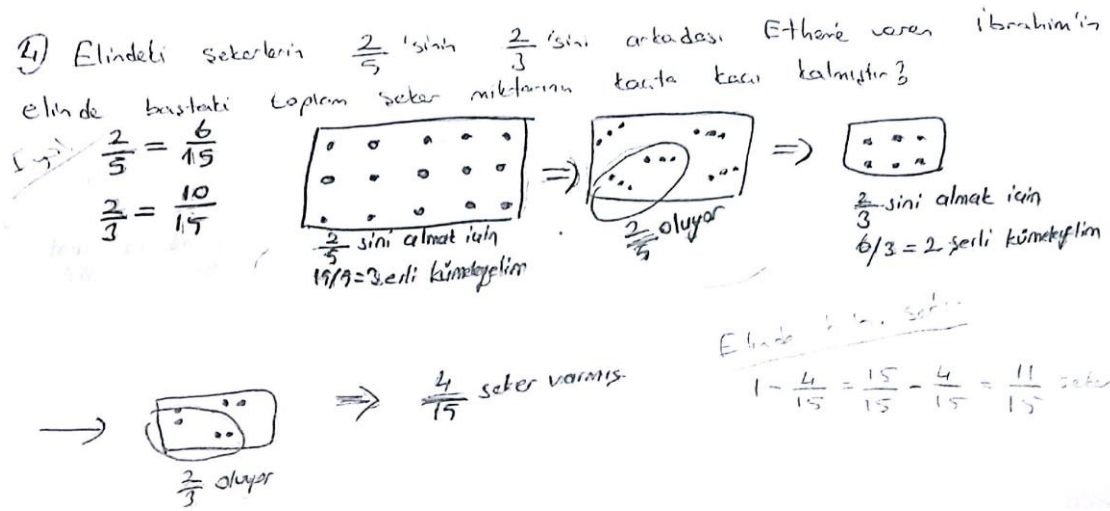 4) Elindeki şekerlerin 2/5 'sinin 2/3 'sini arkadaşı Ethem'e veren İbrahim'in
elinde baştaki toplam şeker miktarının kaçta kaçı kalmıştır?
2/5 = 6/15
2/3 = 10/15
2/5 sini almak için
15/5=3.erli kümeleyelim
⇒
2/5 oluyor
⇒
2/3 sini almak için
6/3 = 2 şerli kümeleyelim
→
2/3 oluyor
⇒ 4/15 şeker varmış.
Elinde
1 - 4/15 = 15/15 - 4/15 = 11/15 şeker